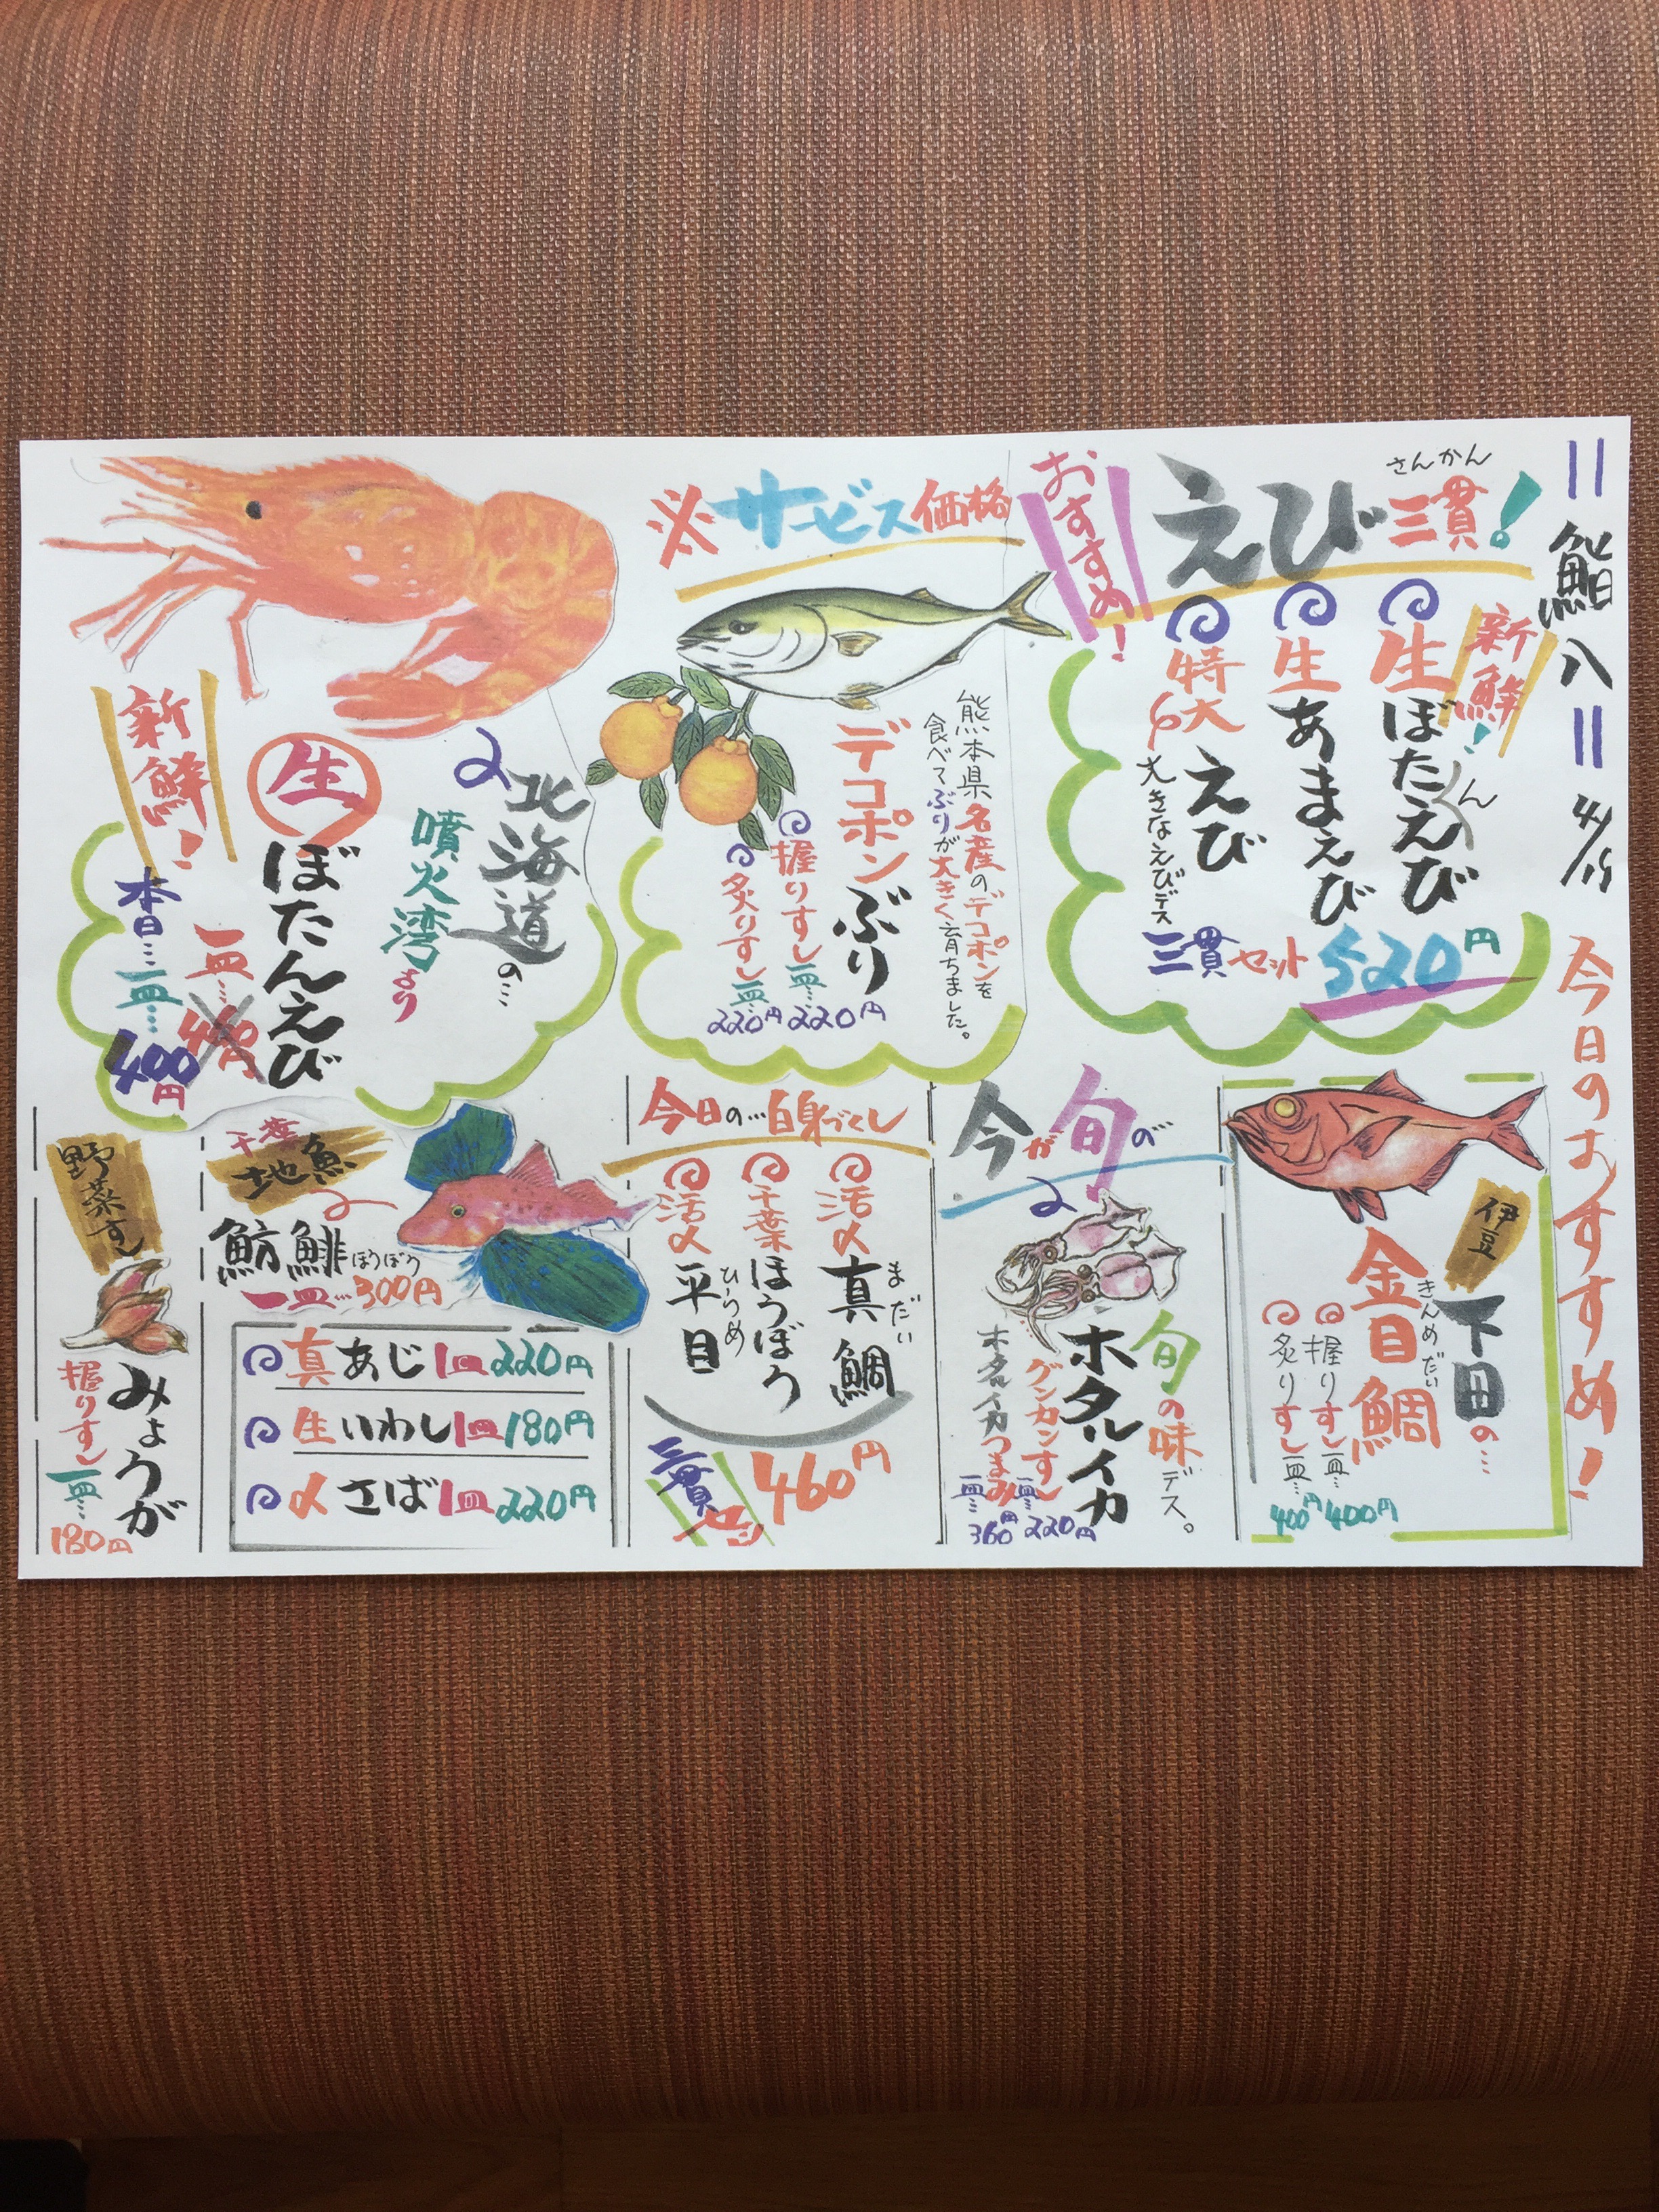 鮨八
4/15
今日のおすすめ!
おすすめ!
さんかん
えび三貫!
新鮮!
生ぼたんえび
生あまえび
特大えび
大きなえびデス
三貫セット 520円
※サービス価格
熊本県名産のデコポンを
食べてぶりが大きく育ちました。
デコポンぶり
握りすし一皿…220円
炙りすし一皿…220円
北海道の…
噴火湾より
生ぼたんえび
新鮮!
一皿…460円
本日…一皿…400円
伊豆
下田の…
きんめだい
金目鯛
握りすし一皿…400円
炙りすし一皿…400円
今が旬の
旬の味デス。
ホタルイカ
グンカンすし一皿…220円
ホタルイカつまみ一皿…360円
今日の…白身づくし
活〆真鯛
まだい
千葉ほうぼう
活〆平目
ひらめ
三貫セット
460円
千葉
地魚
魴鮄
ほうぼう
一皿…300円
真あじ1皿220円
生いわし1皿180円
〆さば1皿220円
野菜すし
みょうが
握りすし一皿…180円